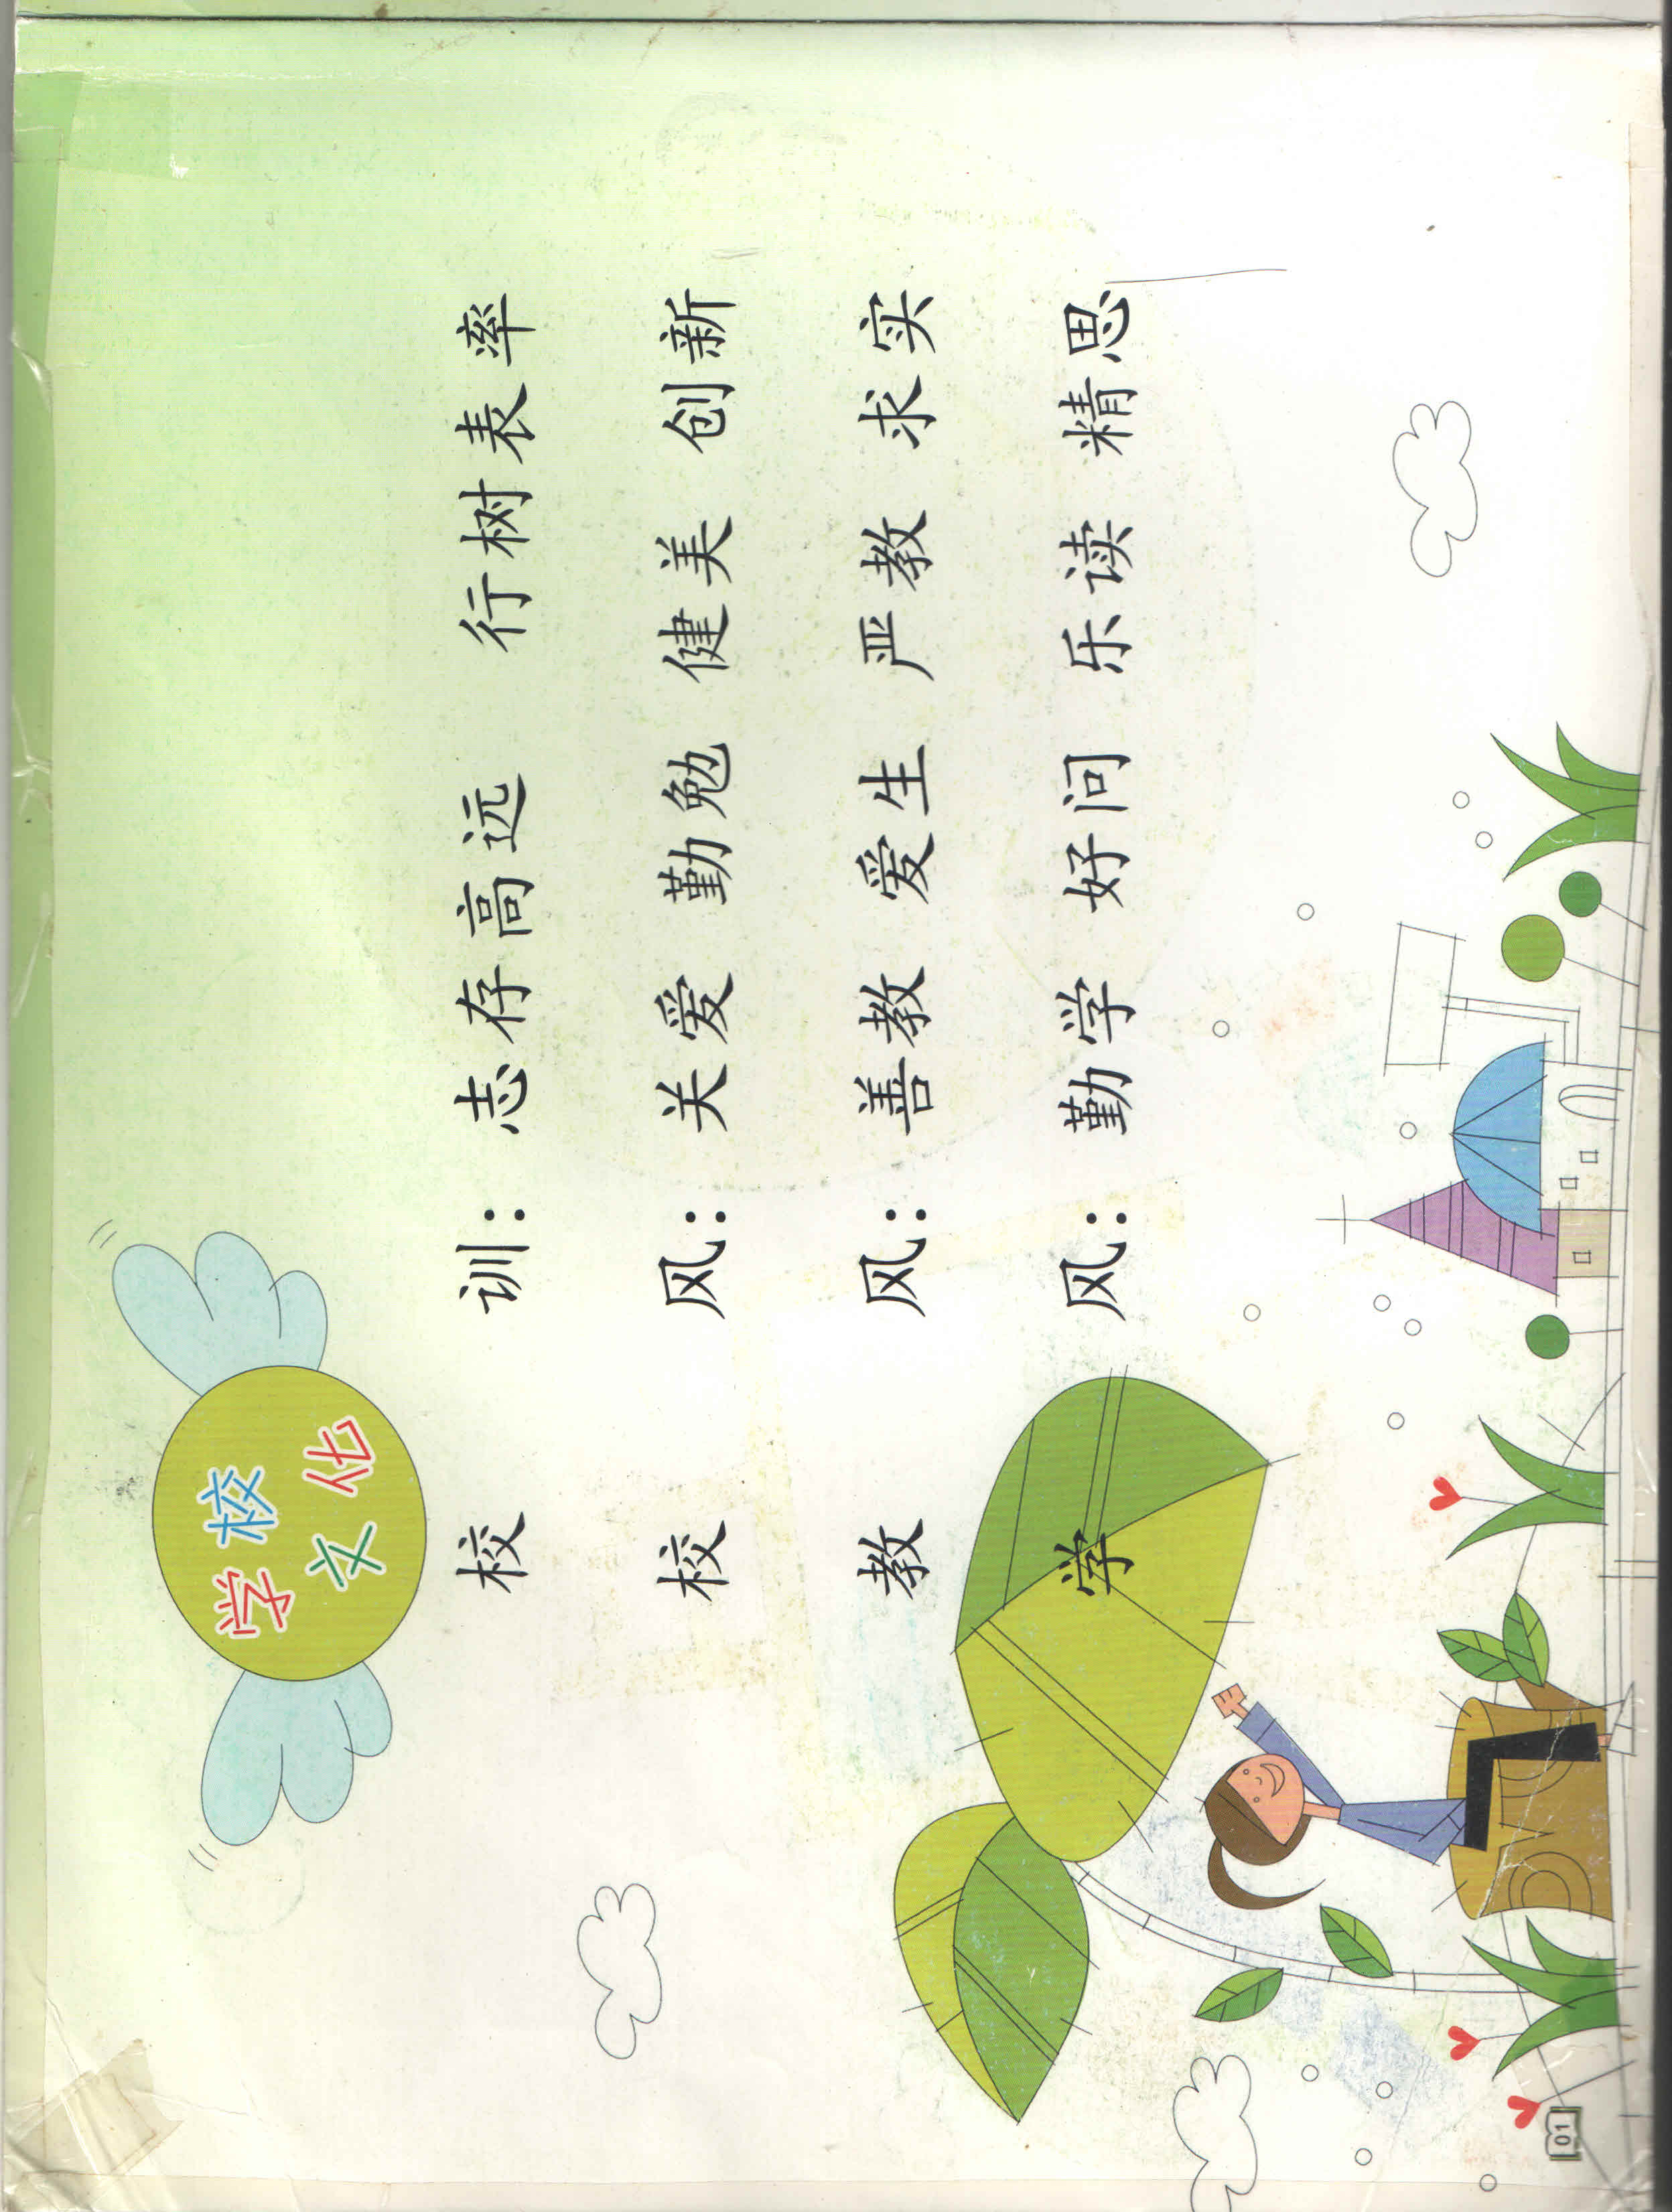 学校
文化
校 训： 志存高远 行树表率
校 风： 关爱 勤勉 健美 创新
教 风： 善教 爱生 严教 求实
学 风： 勤学 好问 乐读 精思
01